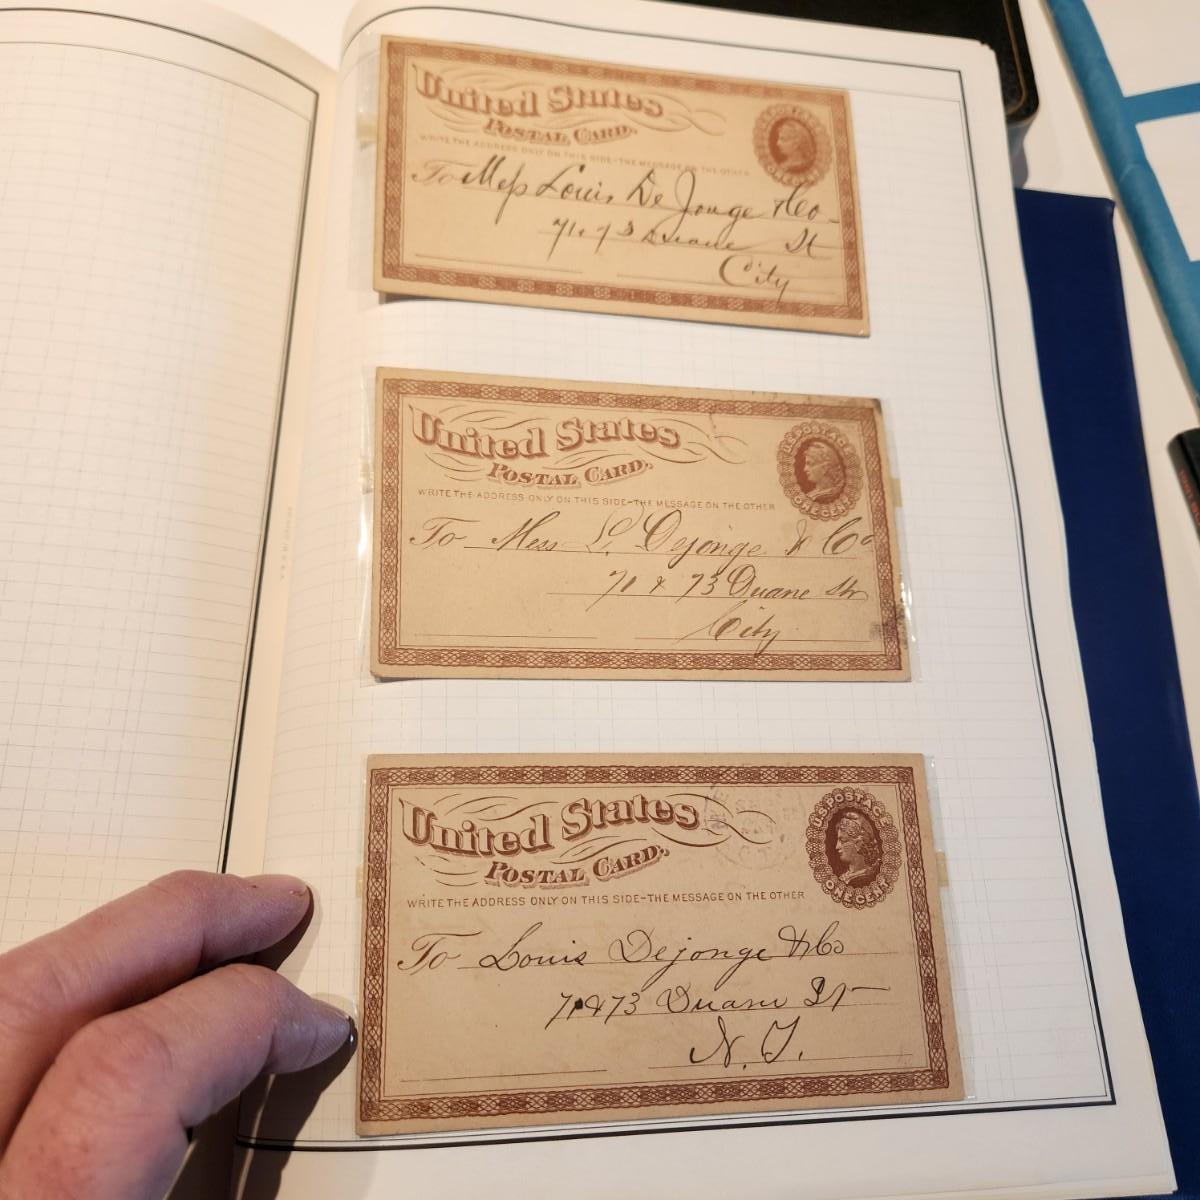 United States
POSTAL CARD.
WRITE THE ADDRESS ONLY ON THIS SIDE-THE MESSAGE ON THE OTHER
To Mess Louis De Jonge & Co
71 & 73 Duane St
City
United States
POSTAL CARD.
U.S. POSTAGE
ONE CENT
WRITE THE ADDRESS ONLY ON THIS SIDE-THE MESSAGE ON THE OTHER
To Mess L. Dejonge & Co
71 & 73 Duane Str
City
United States
POSTAL CARD.
U.S. POSTAGE
ONE CENT
WRITE THE ADDRESS ONLY ON THIS SIDE-THE MESSAGE ON THE OTHER
To Louis Dejonge & Co
71 & 73 Duane St
N.Y.